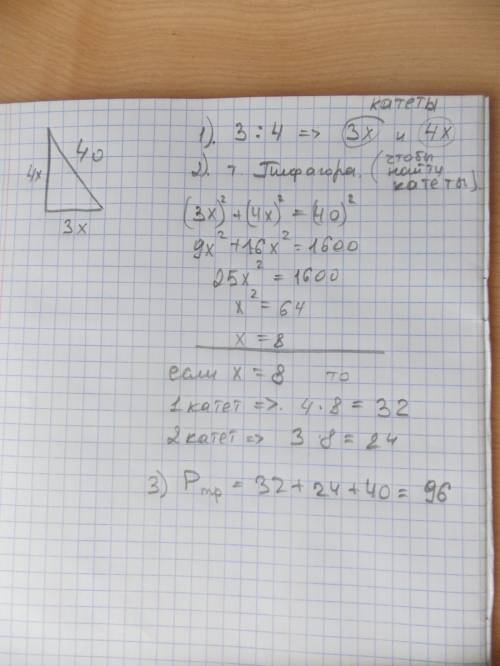 катеты
1). 3:4 => 3x и 4x
4x 40
3x
2). т. Пифагора. (чтобы найти катеты).
(3x)² + (4x)² = (40)²
9x² + 16x² = 1600
25x² = 1600
x² = 64
x = 8
если x = 8 то
1 катет =>. 4 · 8 = 32
2 катет => 3 · 8 = 24
3) Pтр = 32 + 24 + 40 = 96